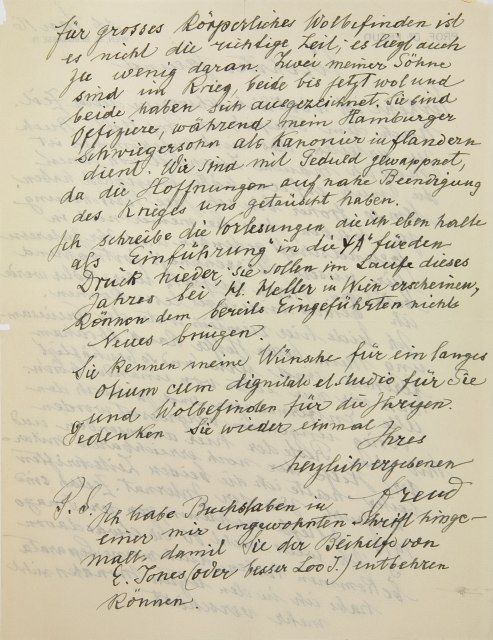 für grosses Körperliches Wolbefinden ist
es nicht die richtige Zeit; es liegt auch
zu wenig daran. Zwei meiner Söhne
sind im Krieg, beide bis jetzt wol und
beide haben sich ausgezeichnet, sie sind
Offiziere, während mein Hamburger
Schwiegersohn als Kanonier in Flandern
dient. Wir sind mit Geduld gewappnet,
da die Hoffnungen auf nahe Beendigung
des Krieges uns getäuscht haben.
Ich schreibe die Vorlesungen, die ich eben halte
als „Einführung" in die ΨA für den
Druck nieder, sie sollen im Laufe dieses
Jahres bei H. Heller in Wien erscheinen,
können dem bereits Eingeführten nichts
Neues bringen.
Sie kennen meine Wünsche für ein langes
Otium cum dignitate et studio für Sie
und Wolbefinden für die Ihrigen.
Gedenken Sie wieder einmal
Ihres
herzlich ergebenen
Freud
P.S.
Ich habe Buchstaben in
einer mir ungewohnten Schrift hinge-
malt, damit Sie der Beihilfe von
E. Jones (oder besser Loo J.) entbehren
können.